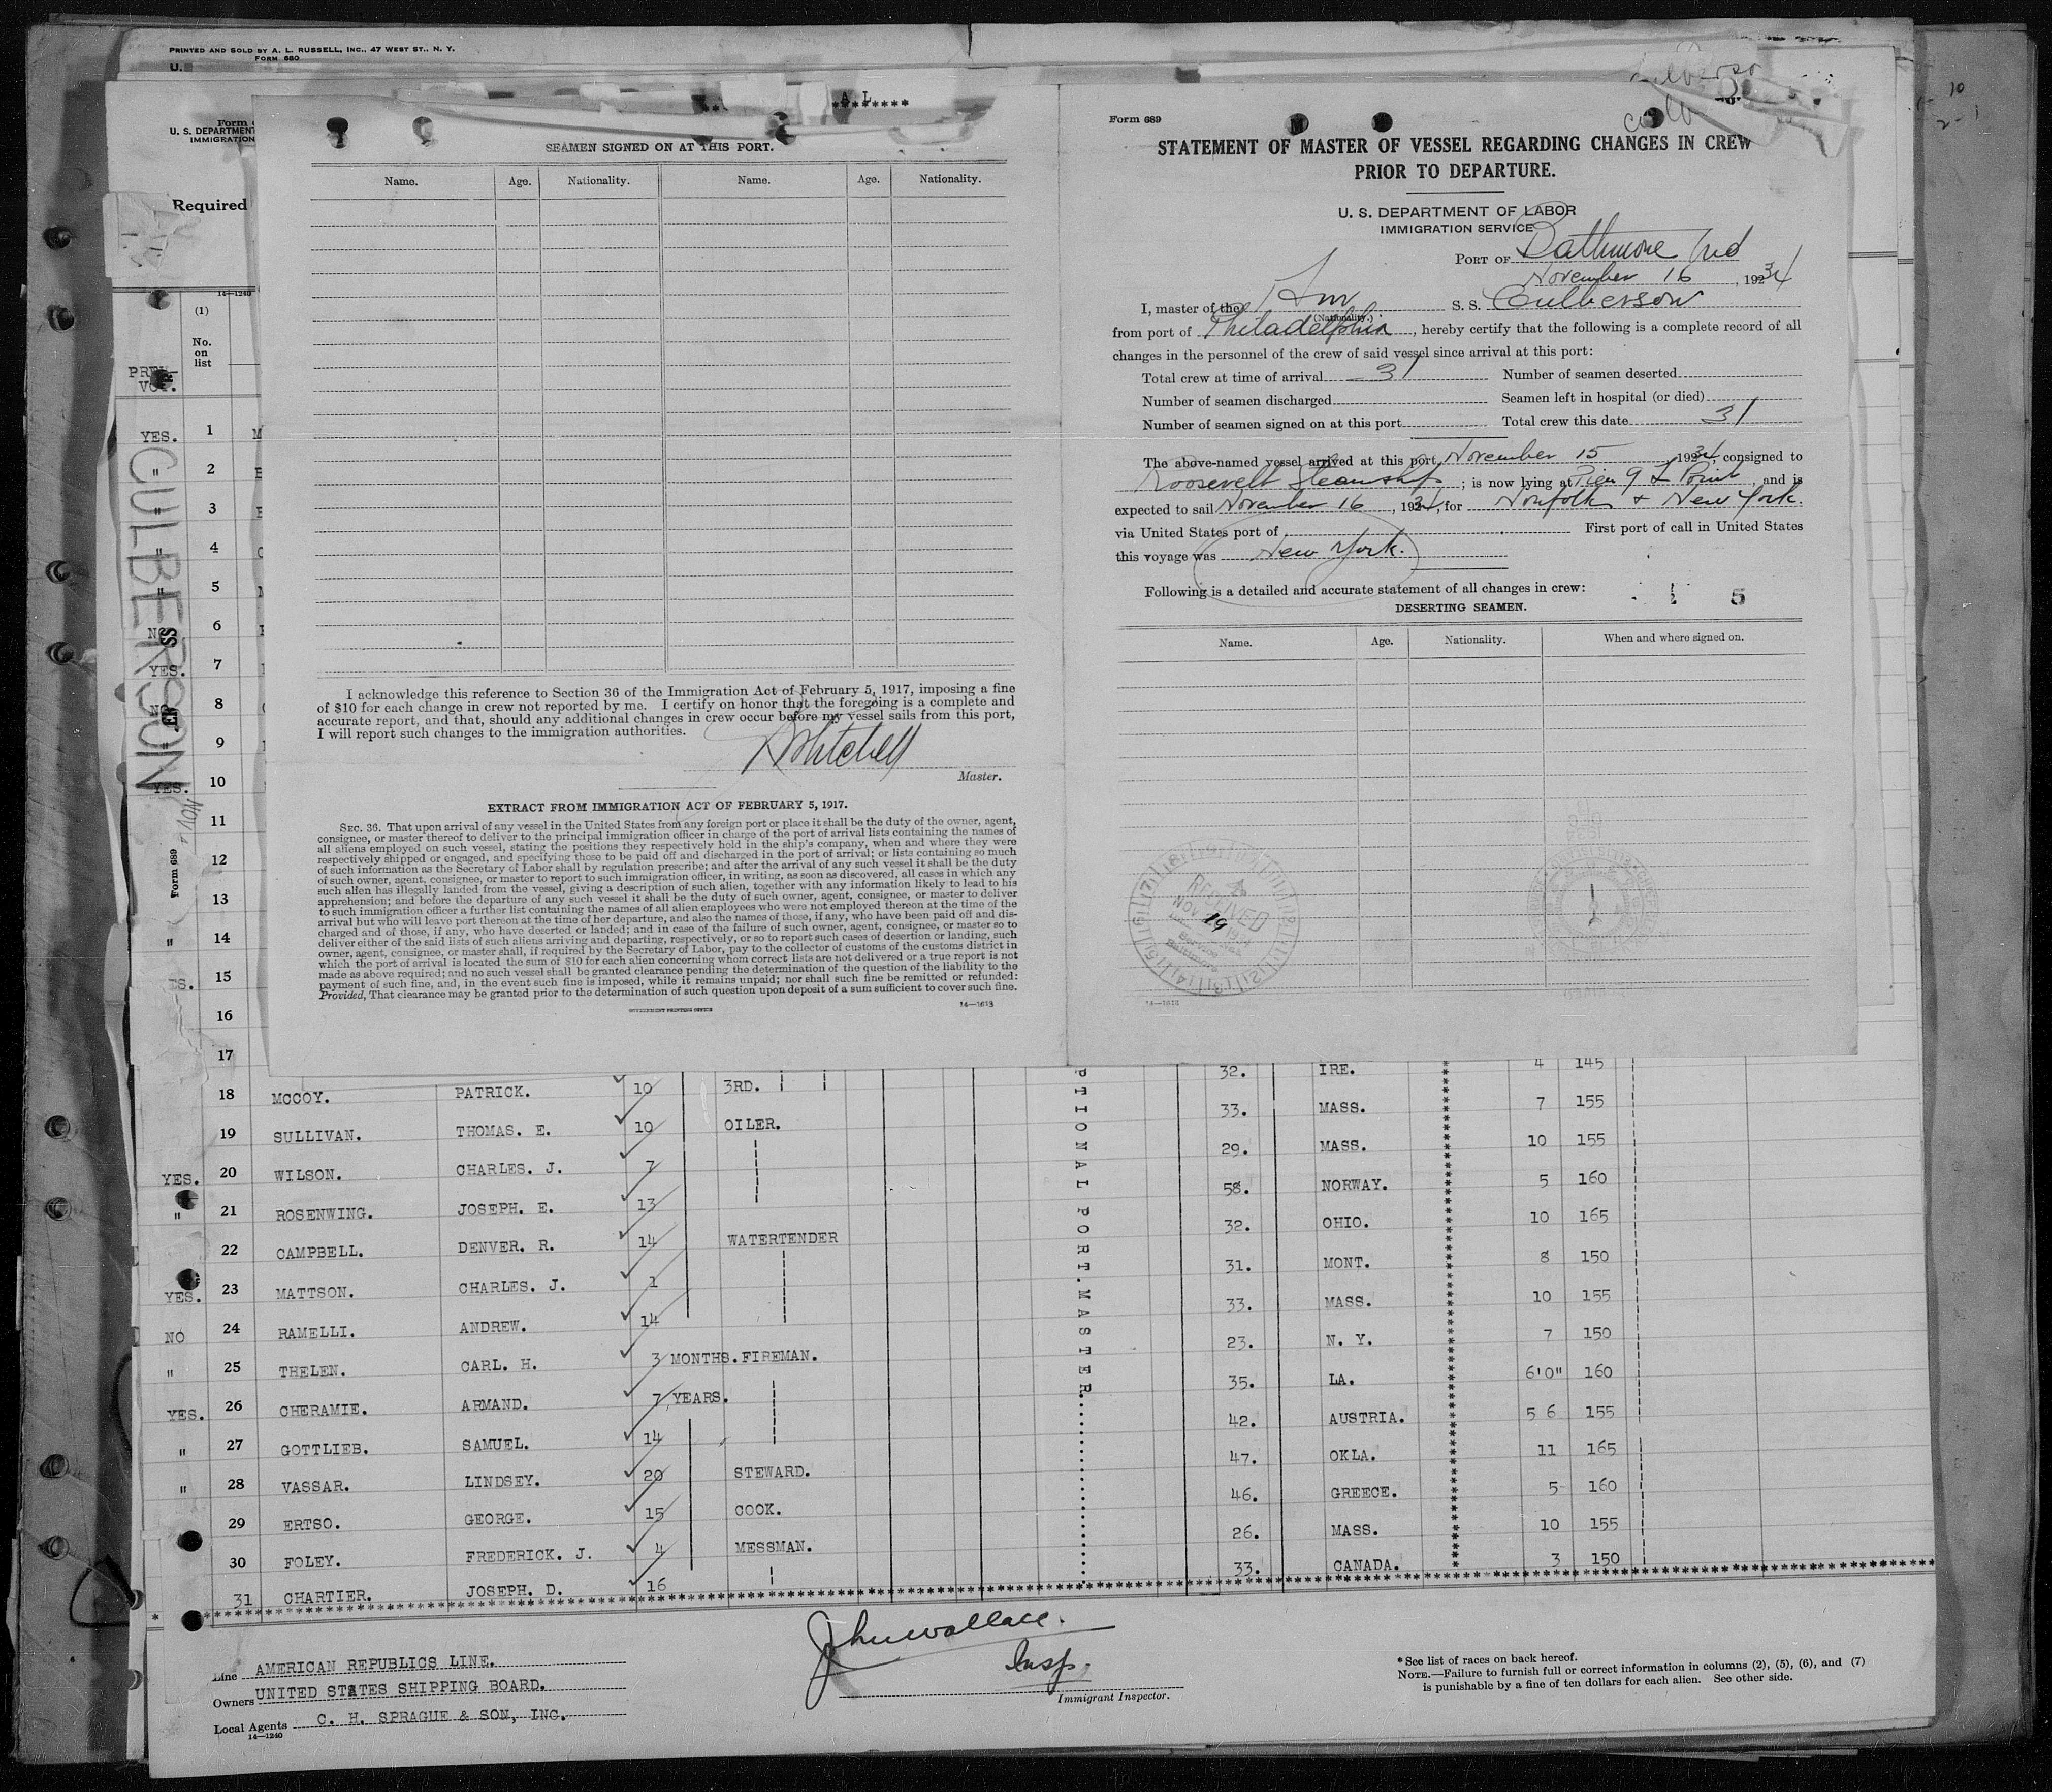 PRINTED AND SOLD BY A. L. RUSSELL, INC., 47 WEST ST., N. Y.
FORM 680
U.
Form
U. S. DEPARTMENT
IMMIGRATION
Required
14—1240
(1)
No.
on
list
PREV-
VOY.
CULBERSON
SEAMEN SIGNED ON AT THIS PORT.
Name. Age. Nationality. Name. Age. Nationality.
I acknowledge this reference to Section 36 of the Immigration Act of February 5, 1917, imposing a fine
of $10 for each change in crew not reported by me. I certify on honor that the foregoing is a complete and
accurate report, and that, should any additional changes in crew occur before my vessel sails from this port,
I will report such changes to the immigration authorities.
Mitchell
Master.
EXTRACT FROM IMMIGRATION ACT OF FEBRUARY 5, 1917.
SEC. 36. That upon arrival of any vessel in the United States from any foreign port or place it shall be the duty of the owner, agent,
consignee, or master thereof to deliver to the principal immigration officer in charge of the port of arrival lists containing the names of
all aliens employed on such vessel, stating the positions they respectively hold in the ship's company, when and where they were
respectively shipped or engaged, and specifying those to be paid off and discharged in the port of arrival; or lists containing so much
of such information as the Secretary of Labor shall by regulation prescribe; and after the arrival of any such vessel it shall be the duty
of such owner, agent, consignee, or master to report to such immigration officer, in writing, as soon as discovered, all cases in which any
such alien has illegally landed from the vessel, giving a description of such alien, together with any information likely to lead to his
apprehension; and before the departure of any such vessel it shall be the duty of such owner, agent, consignee, or master to deliver
to such immigration officer a further list containing the names of all alien employees who were not employed thereon at the time of the
arrival but who will leave port thereon at the time of her departure, and also the names of those, if any, who have been paid off and dis-
charged and of those, if any, who have deserted or landed; and in case of the failure of such owner, agent, consignee, or master so to
deliver either of the said lists of such aliens arriving and departing, respectively, or so to report such cases of desertion or landing, such
owner, agent, consignee, or master shall, if required by the Secretary of Labor, pay to the collector of customs of the customs district in
which the port of arrival is located the sum of $10 for each alien concerning whom correct lists are not delivered or a true report is not
made as above required; and no such vessel shall be granted clearance pending the determination of the question of the liability to the
payment of such fine, and, in the event such fine is imposed, while it remains unpaid; nor shall such fine be remitted or refunded:
Provided, That clearance may be granted prior to the determination of such question upon deposit of a sum sufficient to cover such fine.
GOVERNMENT PRINTING OFFICE 14—1613
Form 689
STATEMENT OF MASTER OF VESSEL REGARDING CHANGES IN CREW
PRIOR TO DEPARTURE.
U. S. DEPARTMENT OF LABOR
IMMIGRATION SERVICE
PORT OF Baltimore Md
November 16, 1934
I, master of the Am S. S. Culberson
(Nationality.)
from port of Philadelphia, hereby certify that the following is a complete record of all
changes in the personnel of the crew of said vessel since arrival at this port:
Total crew at time of arrival 31 Number of seamen deserted
Number of seamen discharged Seamen left in hospital (or died)
Number of seamen signed on at this port Total crew this date 31
The above-named vessel arrived at this port November 15, 1934, consigned to
Roosevelt Steamship; is now lying at Pier 9 L Point, and is
expected to sail November 16, 1934, for Norfolk & New York.
via United States port of First port of call in United States
this voyage was New York.
Following is a detailed and accurate statement of all changes in crew:
5
DESERTING SEAMEN.
Name. Age. Nationality. When and where signed on.
RECEIVED
NOV 19
Baltimore
14—1613
Form 689
YES. 1
" 2
" 3
" 4
" 5
NO 6
YES. 7
NO 8
" 9
YES. 10
11
12
13
" 14
ES. 15
16
17 32. IRE. 4 145
18 MCCOY. PATRICK. 10 3RD. 33. MASS. 7 155
19 SULLIVAN. THOMAS. E. 10 OILER. 29. MASS. 10 155
YES. 20 WILSON. CHARLES. J. 7 58. NORWAY. 5 160
" 21 ROSENWING. JOSEPH. E. 13 32. OHIO. 10 165
22 CAMPBELL. DENVER. R. 14 WATERTENDER 31. MONT. 8 150
YES. 23 MATTSON. CHARLES. J. 1 33. MASS. 10 155
NO 24 RAMELLI. ANDREW. 14 23. N. Y. 7 150
" 25 THELEN. CARL. H. 3 MONTHS. FIREMAN. 35. LA. 6'0" 160
YES. 26 CHERAMIE. ARMAND. 7 YEARS. 42. AUSTRIA. 5 6 155
" 27 GOTTLIEB. SAMUEL. 14 47. OKLA. 11 165
" 28 VASSAR. LINDSEY. 20 STEWARD. 46. GREECE. 5 160
29 ERTSO. GEORGE. 15 COOK. 26. MASS. 10 155
30 FOLEY. FREDERICK. J. 4 MESSMAN. 33. CANADA. 3 150
31 CHARTIER. JOSEPH. D. 16
PTIONAL PORT.MASTER
John Wallace.
Insp.
Immigrant Inspector.
Line AMERICAN REPUBLICS LINE.
Owners UNITED STATES SHIPPING BOARD.
Local Agents C. H. SPRAGUE & SON, INC.
14—1240
*See list of races on back hereof.
NOTE.—Failure to furnish full or correct information in columns (2), (5), (6), and (7)
is punishable by a fine of ten dollars for each alien. See other side.